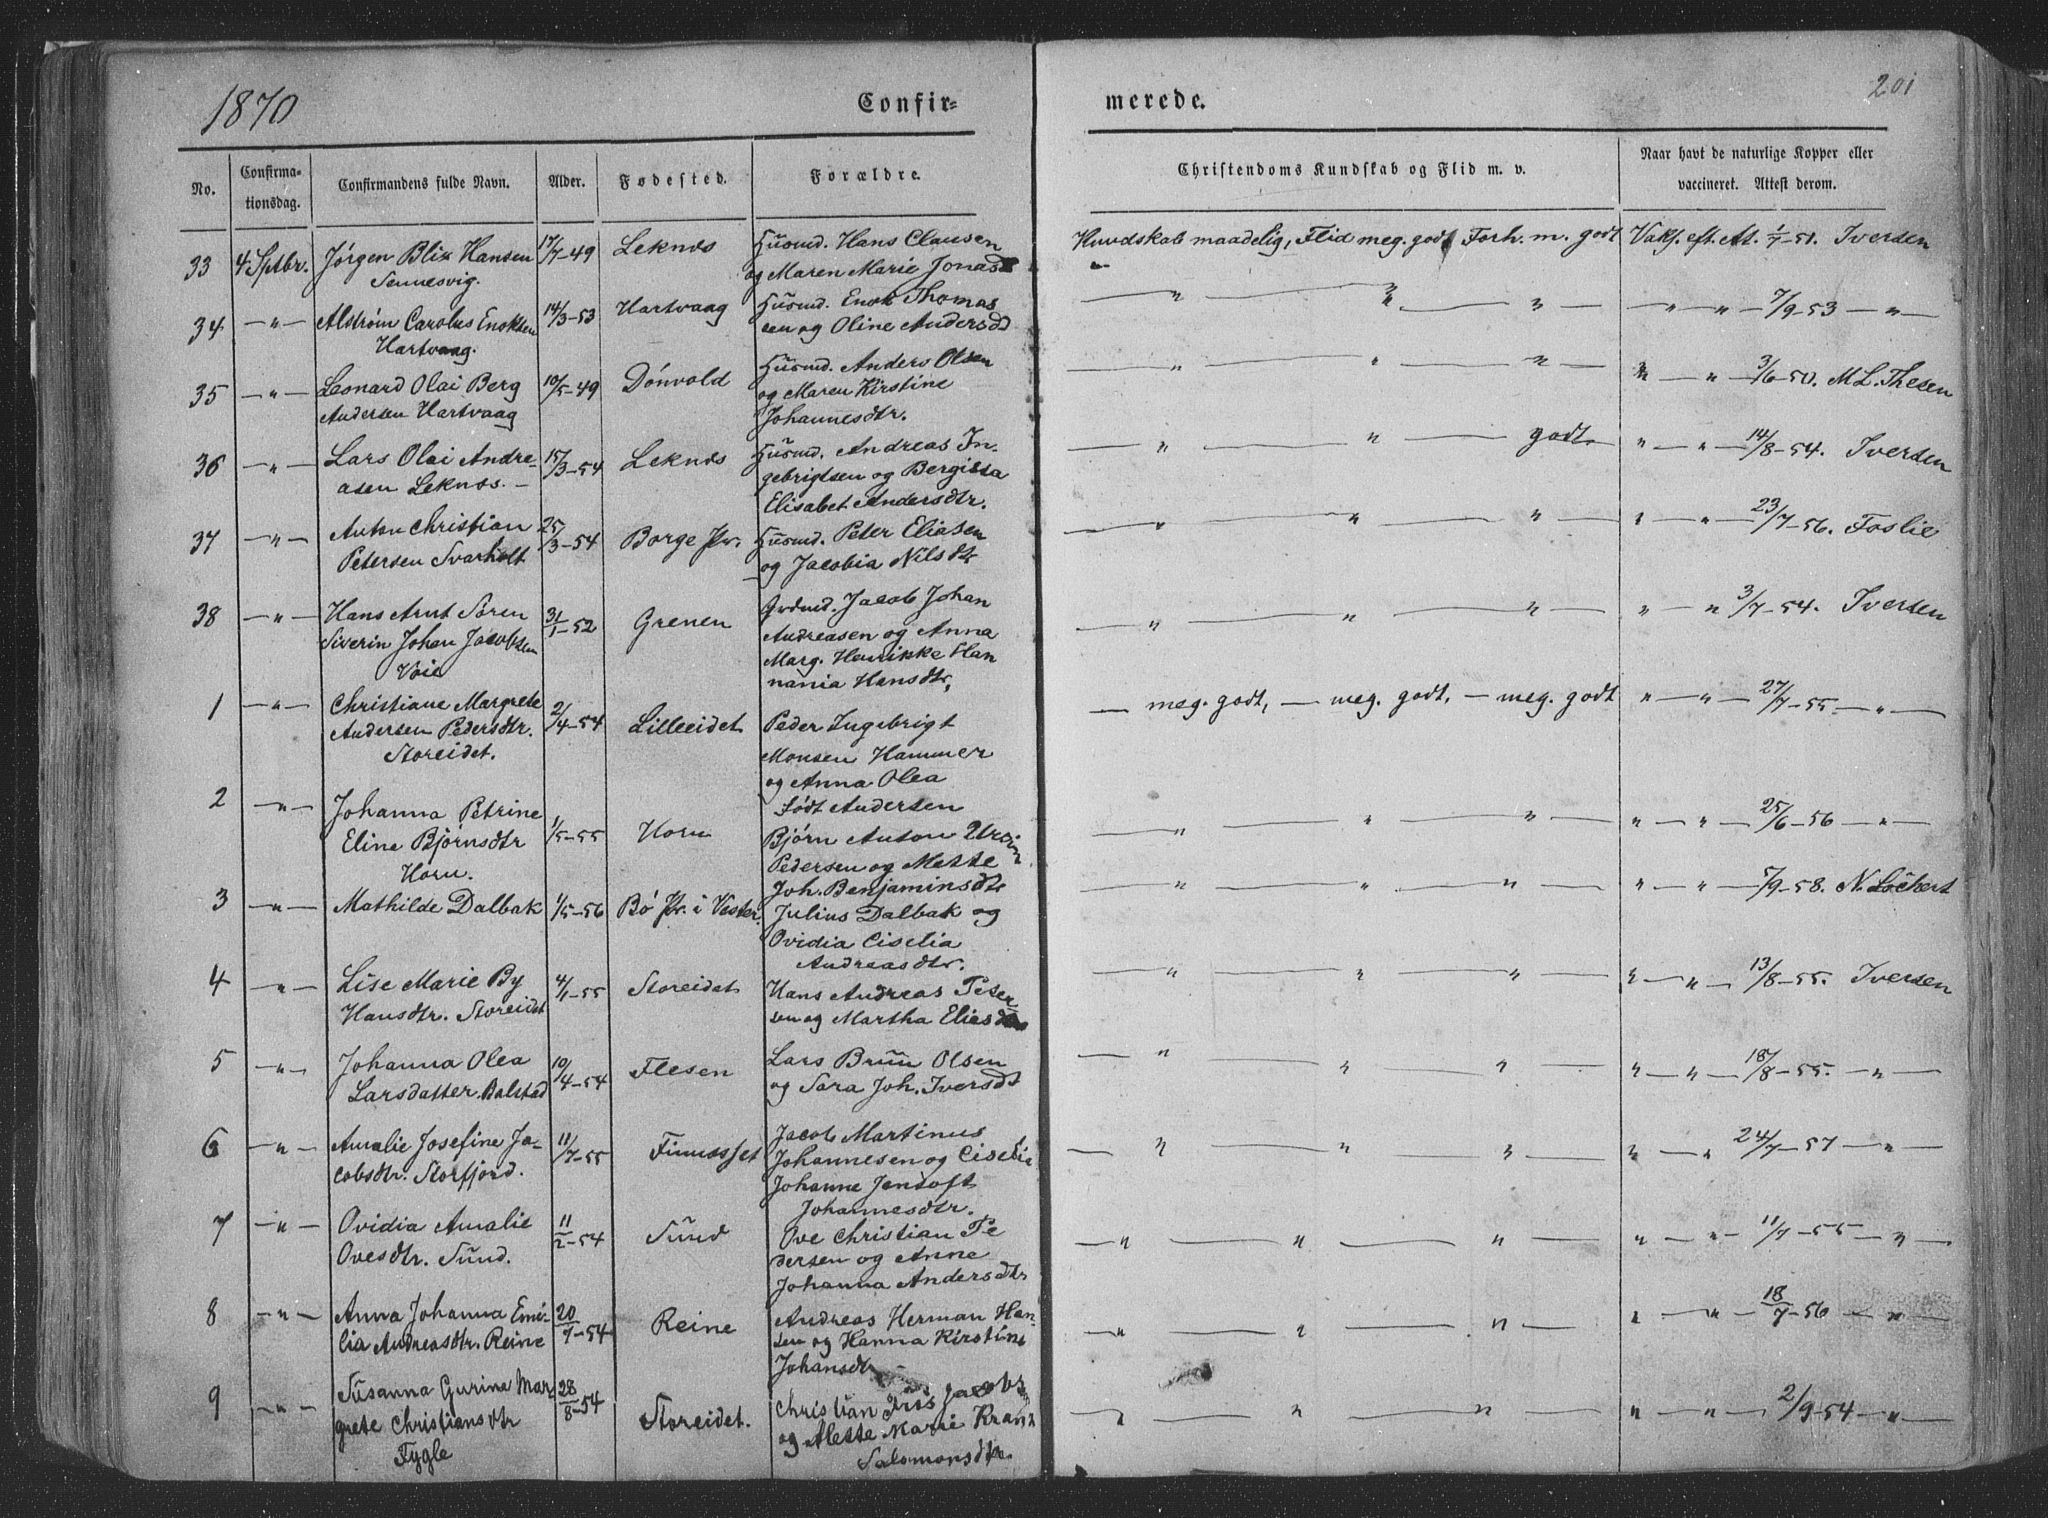 1870
Confir-
merede.
201
No.
Confirma-
tionsdag.
Confirmandens fulde Navn.
Alder.
Fødested.
Forældre.
Christendoms Kundskab og Flid m. v.
Naar havt de naturlige Kopper eller
vaccineret. Attest derom.
33 4 Sptbr. Jørgen Blix Hansen 17/7-49 Leknes Husmd. Hans Clausen Kundskab maadelig, Flid meg. godt Forh. m. godt Vaks. eft. At. 1/7-51. Iversen
Sennesvig. og Maren Marie Jonasd
34 —"— Alstrøm Carolus Enoksen 14/3-53 Hartvaag Husmd. Enok Thomas — " — " — " — " — " 7/9-53 — "
Hartvaag. sen og Oline Andersdt
35 —"— Leonard Olai Berg 10/5-49 Dønvold Husmd. Anders Olsen — " — " — " — " — " 3/6-50. M.L. Thesen
Andersen Hartvaag og Maren Kirstine
Johannesdtr.
36 —"— Lars Olai Andre- 15/3-54 Leknes Husmd. Andreas In- — " — " — godt " — " 14/8-54. Iversen
asen Leknes. — gebrigtsen og Bergitta
Elisabet Andersdtr.
37 —"— Anton Christian 25/3-54 Borge Pr. Husmd. Peter Eliasen — " — " — " " — " 23/7-56. Foslie
Petersen Svarholt og Jacobia Nilsdtr
38 —"— Hans Arnt Søren 31/1-52 Grenen Grdmd. Jacob Johan — " — " — " " — " 3/7-54. Iversen
Siverin Johan Jacobsen Andreasen og Anna
Voie Marg. Henrikke Han
nania Hansdtr,
1 —"— Christiane Margrete 2/4-54 Lilleeidet Peder Ingebrigt — meg. godt, — meg. godt, — meg. godt " — " 27/7-55 — "
Andersen Pedersdtr. Monsen Hammer
Storeidet. og Anna Olea
født Andersen
2 —"— Johanna Petrine 1/5-55 Horn Bjørn Anton — " — " — " " — " 25/6-56 — "
Eline Bjørnsdtr Pedersen og Mette
Horn. Joh. Benjaminsdtr
3 —"— Mathilde Dalbak 1/5-56 Bø Pr. i Vester. Julius Dalbak og — " — " — " " — " 5/9-58. N. Lochert
Ovidia Ciselia
Andreasdtr.
4 —"— Lise Marie By 4/1-55 Storeidet Hans Andreas Peter — " — " — " " — " 13/8-55. Iversen
Hansdtr. Storeidet sen og Martha Eliesd
5 —"— Johanna Olea 10/4-54 Flesen Lars Bruun Olsen — " — " — " " — " 18/8-55. — "
Larsdatter Balstad og Sara Joh. Iversdt
6 —"— Amalie Josefine Ja- 11/7-55 Finnesset Jacob Martinus — " — " — " " — " 24/7-57 — "
cobsdtr. Storfjord. Johannesen og Ciselia
Johanne Jentoft
Johannesdtr.
7 —"— Ovidia Amalie 11/2-54 Sund Ove Christian Pe — " — " — " " — " 11/7-55 — "
Ovesdtr. Sund. dersen og Anne
Johanna Andersdtr
8 —"— Anna Johanna Emi- 20/7-54 Reine Andreas Herman Han- — " — " — " " — " 18/7-56 — "
lia Andreasdtr. Reine sen og Hanna Kirstine
Johansdtr
9 —"— Susanna Gurina Mar 28/8-54 Storeidet. Christian Friis Jacobs — " — " — " " — " 2/9-54 — "
grete Christiansdtr og Alette Marie Krane
Fygle Salomonsdtr.